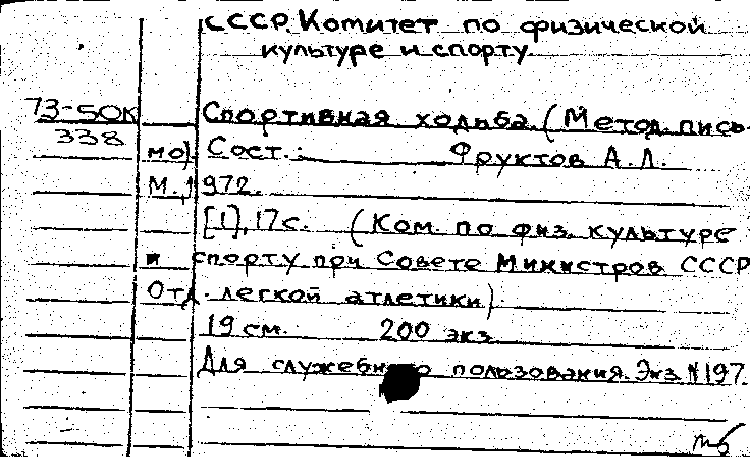 СССР. Комитет по физической
культуре и спорту.
73-50К Спортивная ходьба. (Метод. пись-
338
мо). Сост.: Фруктов А.Л.
М., 1972.
[1], 17с. (Ком. по физ. культуре
и спорту при Совете Министров СССР
Отд. легкой атлетики).
19 см. 200 экз.
Для служебного пользования. Экз. №197.